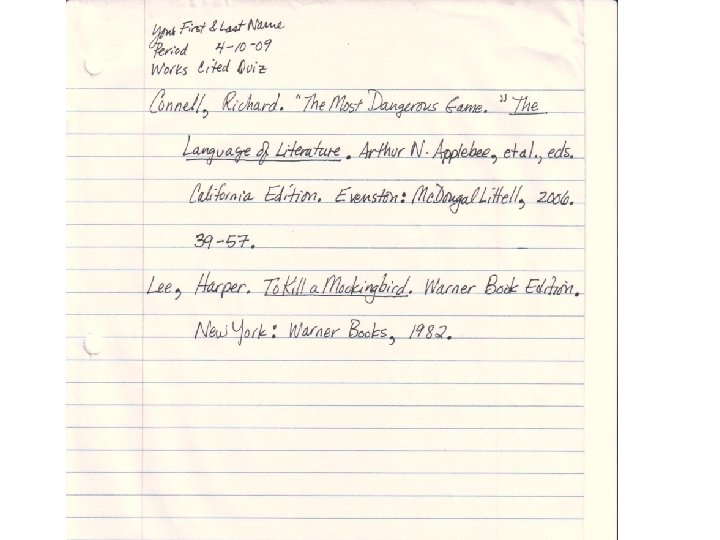 Your First & Last Name
Period 4-10-09
Works Cited Quiz
Connell, Richard. "The Most Dangerous Game." The
Language of Literature. Arthur N. Applebee, et al., eds.
California Edition. Evenston: McDougal Littell, 2006.
39-57.
Lee, Harper. To Kill a Mockingbird. Warner Book Edition.
New York: Warner Books, 1982.